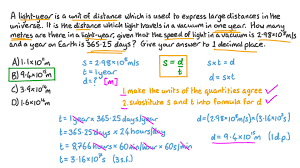 A light-year is a unit of distance which is used to express large distances in the
universe. It is the distance which light travels in a vacuum in one year. How many
metres are there in a light-year, given that the speed of light in a vacuum is 2.98×10⁸ m/s
and a year on Earth is 365.25 days? Give your answer to 1 decimal place.
A) 1.1×10¹⁵m
B) 9.4×10¹⁵m
C) 3.9×10¹⁵m
D) 1.6×10¹⁴m
s = 2.98×10⁸m/s
t = 1 year
d = ? [m]
s = d/t
s×t = d
d = s×t
1 make the units of the quantities agree ✓
2. substitute s and t into formula for d ✓
t = 1 year × 365.25 days/year
t = 365.25 days × 24 hours/day
t = 8766 hours × 60 min/hour × 60s/min
t = 3.16×10⁷s (3 s.f.)
d = (2.98×10⁸m/s)×(3.16×10⁷s)
d = 9.4×10¹⁵m (1 d.p.)